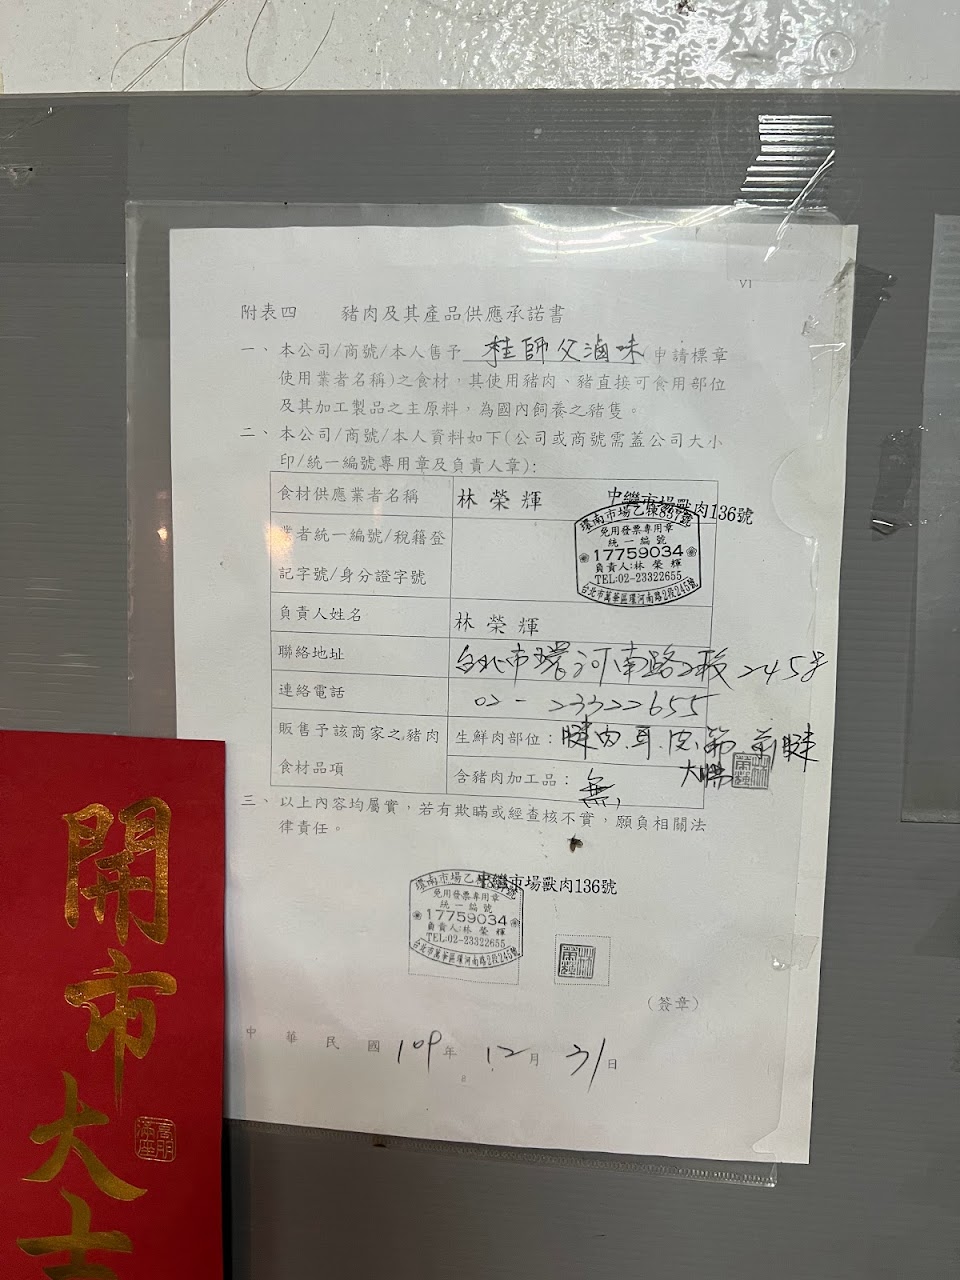 V1
附表四 豬肉及其產品供應承諾書
一、本公司/商號/本人售予 桂師父滷味(申請標章
使用業者名稱)之食材，其使用豬肉、豬直接可食用部位
及其加工製品之主原料，為國內飼養之豬隻。
二、本公司/商號/本人資料如下(公司或商號需蓋公司大小
印/統一編號專用章及負責人章):
食材供應業者名稱 林榮輝
中繼市場獸肉136號
業者統一編號/稅籍登
記字號/身分證字號
環南市場乙棟837號
免用發票專用章
統一編號
17759034
負責人:林榮輝
TEL:02-23322655
台北市萬華區環河南路2段245號
負責人姓名 林榮輝
聯絡地址 台北市環河南路2段245号
連絡電話 02-23322655
販售予該商家之豬肉
食材品項
生鮮肉部位：腱肉.耳.皮. 前腱
大腸
含豬肉加工品：無,
三、以上內容均屬實，若有欺瞞或經查核不實，願負相關法
律責任。
中繼市場獸肉136號
環南市場乙棟837號
免用發票專用章
統一編號
17759034
負責人:林榮輝
TEL:02-23322655
台北市萬華區環河南路2段245號
(簽章)
中華民國109年12月31日
8
開市大吉